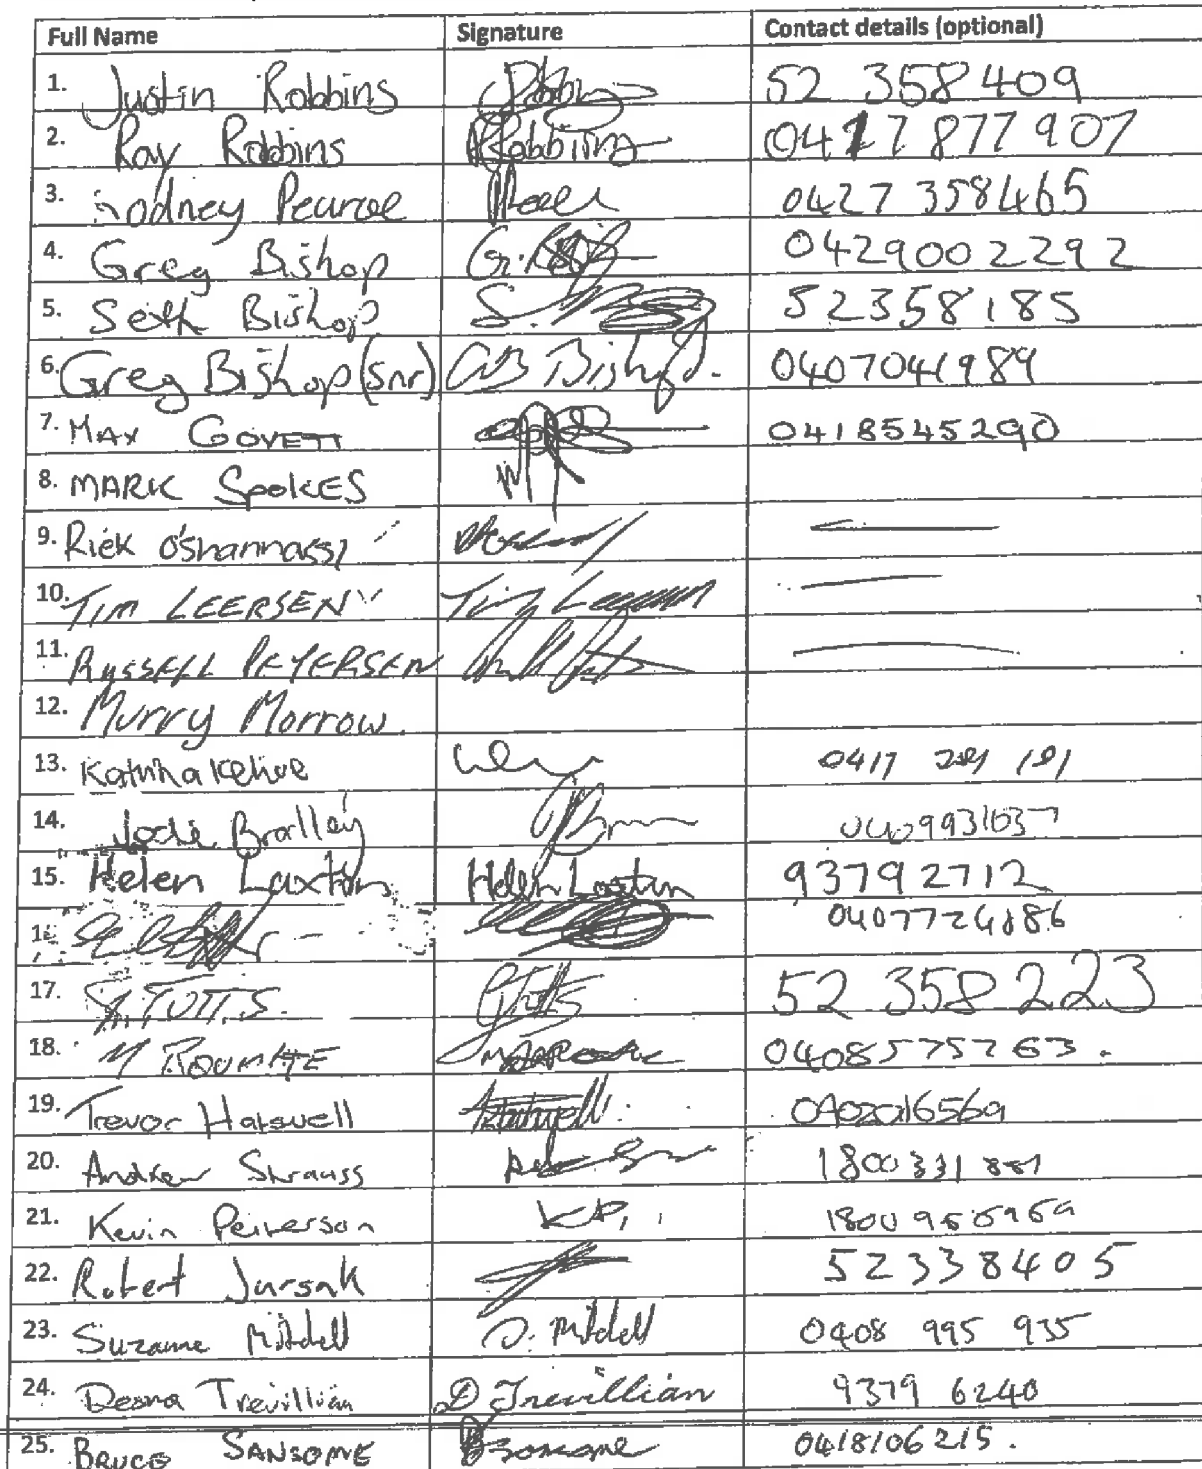 Full Name Signature Contact details (optional)
1. Justin Robbins 52 358 409
2. Ray Robbins Robbins 0417 877 907
3. Rodney Pearce 0427 358465
4. Greg Bishop 0429002292
5. Seth Bishop 52358185
6. Greg Bishop (Snr) GB Bishop. 0407041989
7. MAX GOVETT 0418545290
8. MARK SPOKES
9. Rick O'Shannassy
10. TIM LEERSEN Tim Leersen
11. RUSSELL PETERSEN
12. Murry Morrow.
13. Katrina 0417
14. Jodie Bradley
15. Helen Laxton Helen Laxton 93792712
0407724886
17. TUTT.S. 52 358 223
18. M 0408575763.
19. Trevor Hatswell
20. Andrew Strauss 1800 331 881
21. Kevin Peiterson KP.
22. Robert Jursak 52338405
23. Suzanne Mitchell S. Mitchell 0408 995 935
24. Desna Trevillian D Trevillian 9379 6240
25. BRUCE SANSOME BSansome 0418106215.